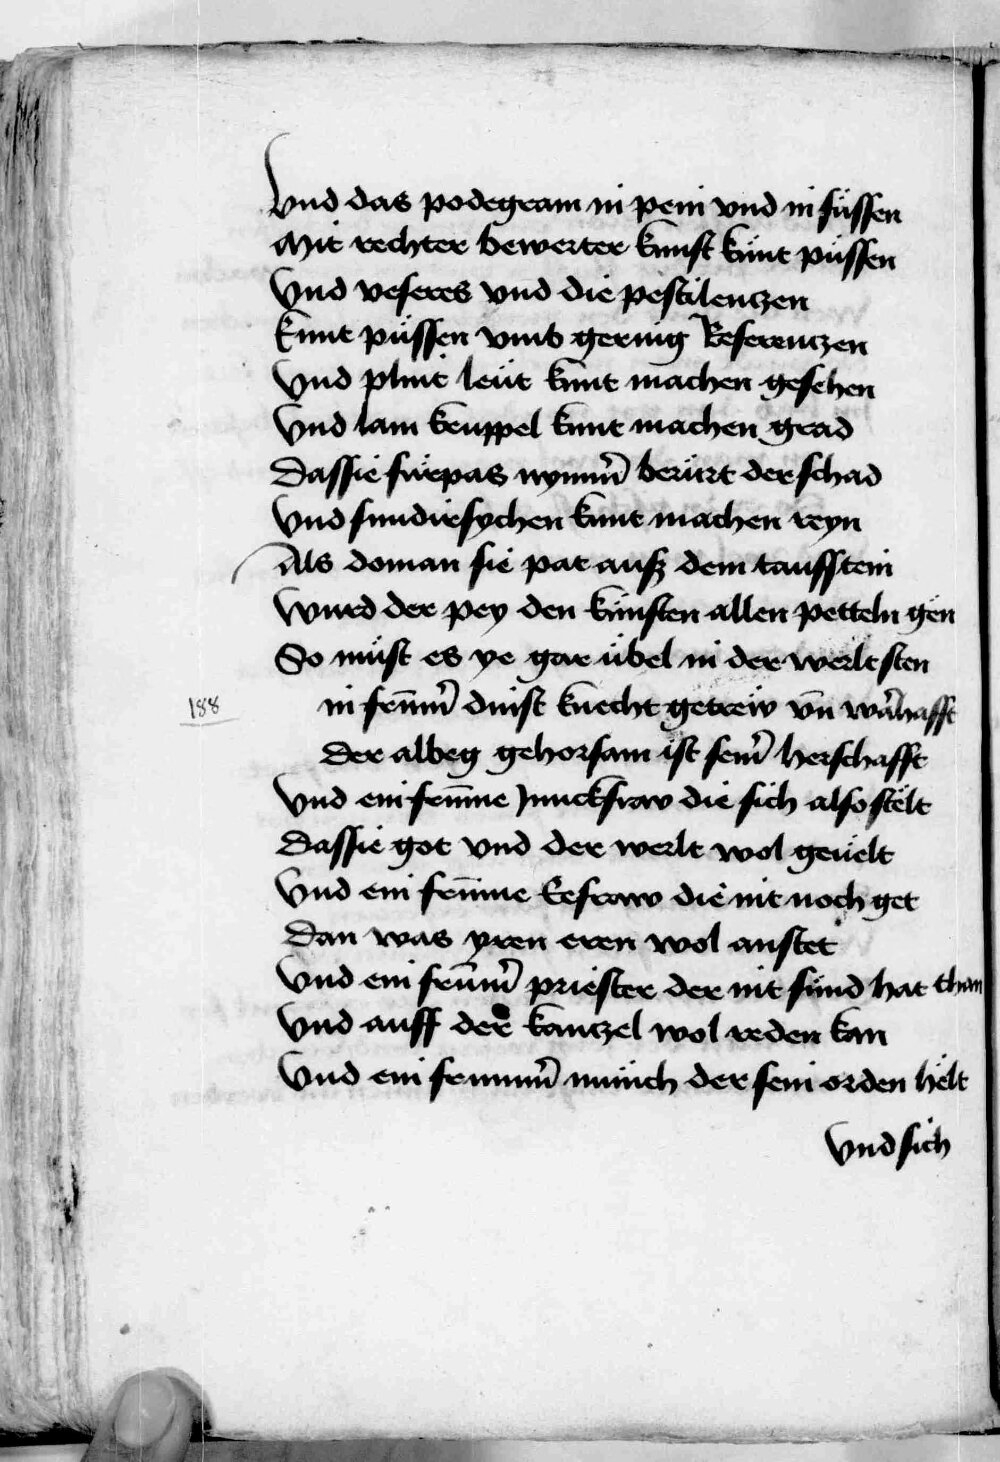 Vnd das podegram in pein vnd in füssen
Mit rechter bewerter kunst künt püssen
Vnd veferes vnd die pestilenczen
Kunt püssen vmb gering Referenczen
Vnd plint leüt kunt machen gesehen
Vnd lam krüppel kunt machen grad
Das sie fürpas nymm̃ berürt der schad
Vnd sundirsychen kunt machen reyn
Als do man sie pat ausz dem tauffstein
Wurd der pey den künsten allen petteln gen
So müst es ye gar übel in der werlt sten
188
in frūm̃ dinst knecht getrew vn̄ warhafft
der albeg gehorsam ist sein̄ herschafft
Vnd ein frūme Junckfraw die sich also stelt
Das sie got vnd der werlt wol geuelt
Vnd ein frūme Eefraw die nit noch get
Dan was yren eren wol anstet
Vnd ein frūm̃ priester der nit sünd hat than
Vnd auff der kanczel wol reden kan
Vnd ein frumm̃ münch der sein orden helt
Vnd sich